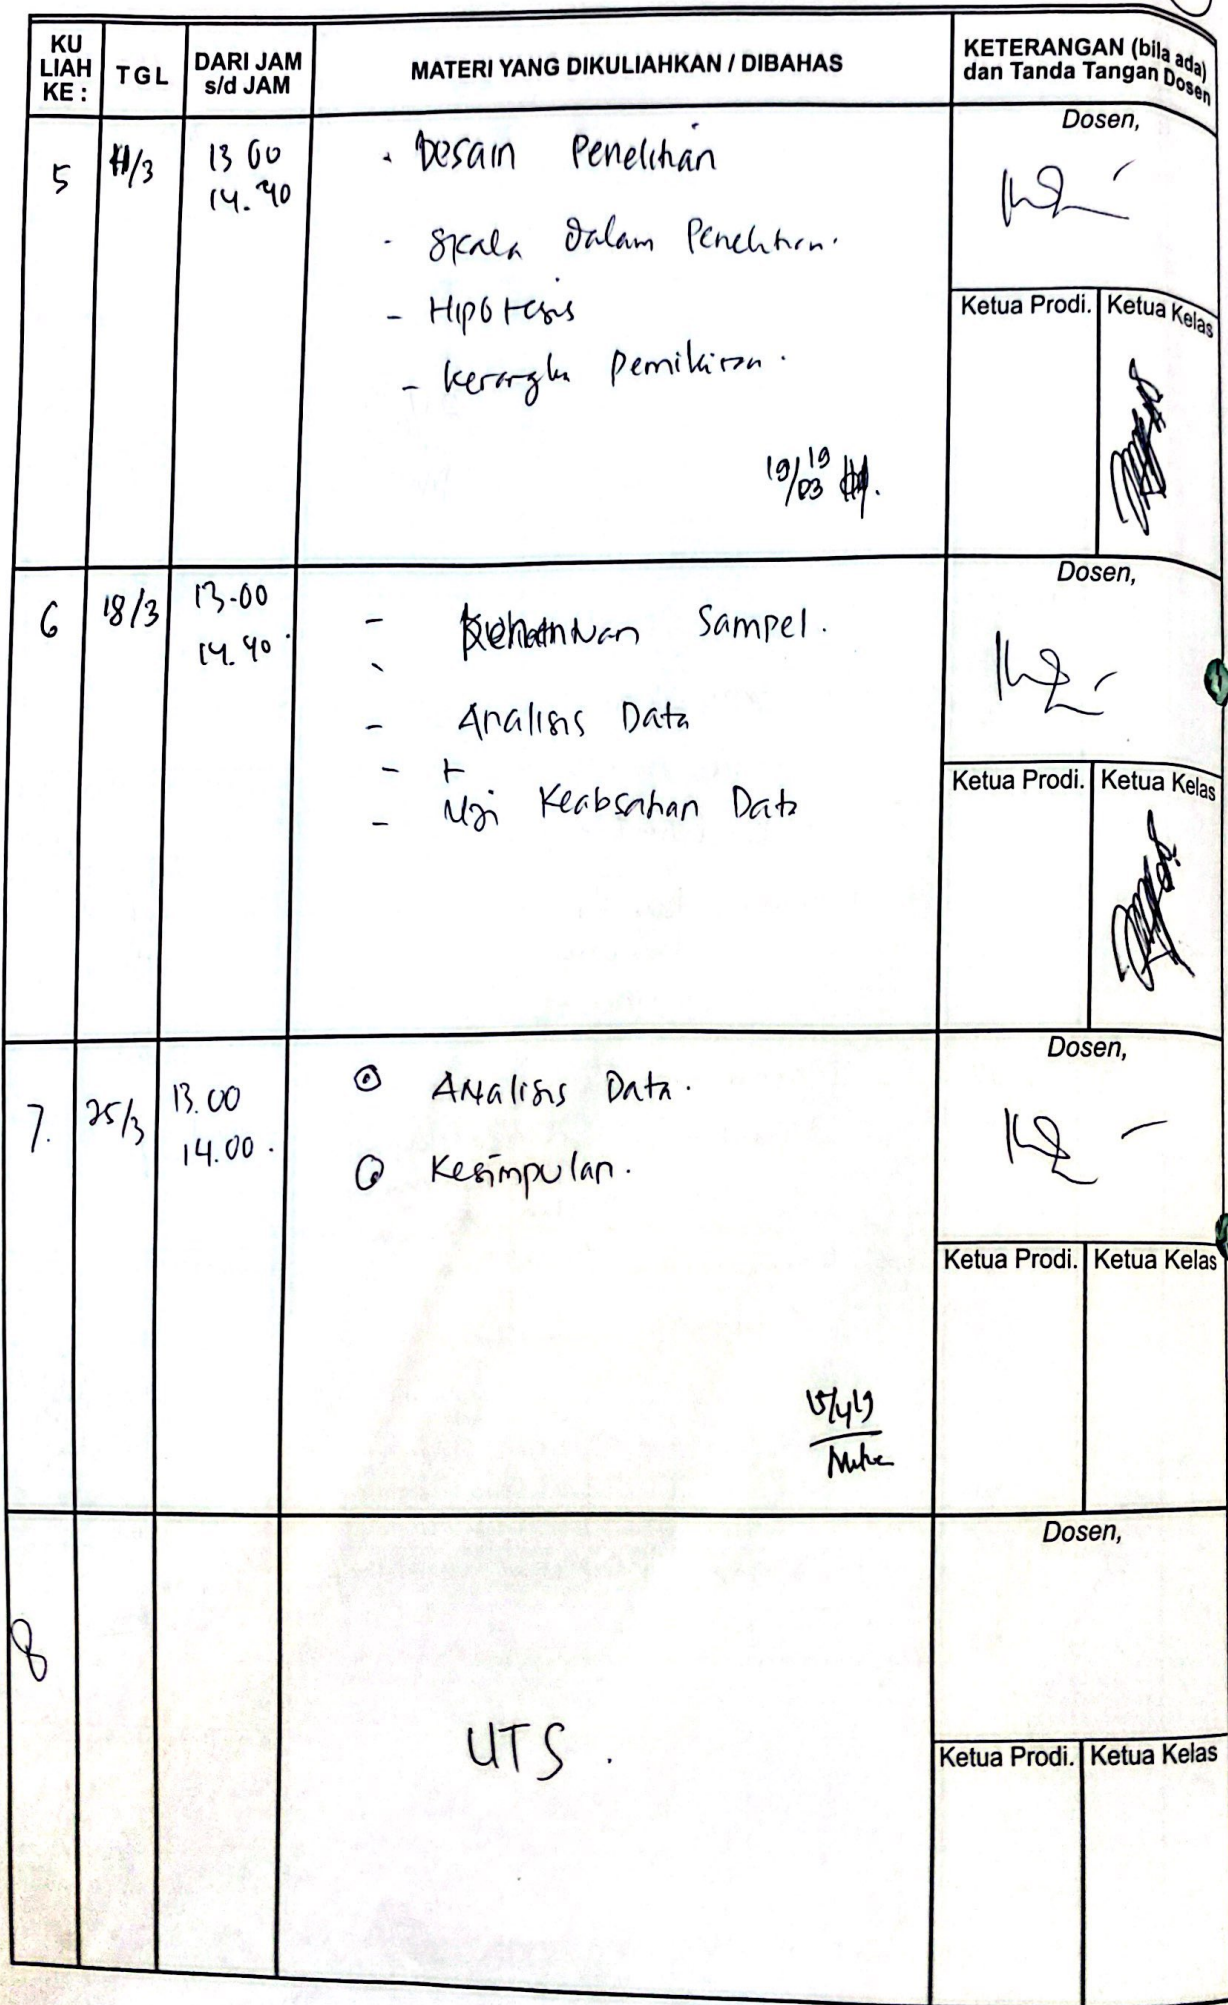 KU LIAH KE : TGL DARI JAM s/d JAM MATERI YANG DIKULIAHKAN / DIBAHAS KETERANGAN (bila ada) dan Tanda Tangan Dosen
5 11/3 13 00 14.40
- Desain Penelitian
- Skala dalam Penelitian.
- Hipotesis
- Kerangka Pemikiran.
19/03 19
Dosen,
Ketua Prodi. Ketua Kelas
6 18/3 13.00 14.40.
- Sampel.
- Analisis Data
- Uji Keabsahan Data
Dosen,
Ketua Prodi. Ketua Kelas
7. 25/3 13.00 14.00.
Analisis Data.
Kesimpulan.
15/4 19
Dosen,
Ketua Prodi. Ketua Kelas
8
UTS.
Dosen,
Ketua Prodi. Ketua Kelas